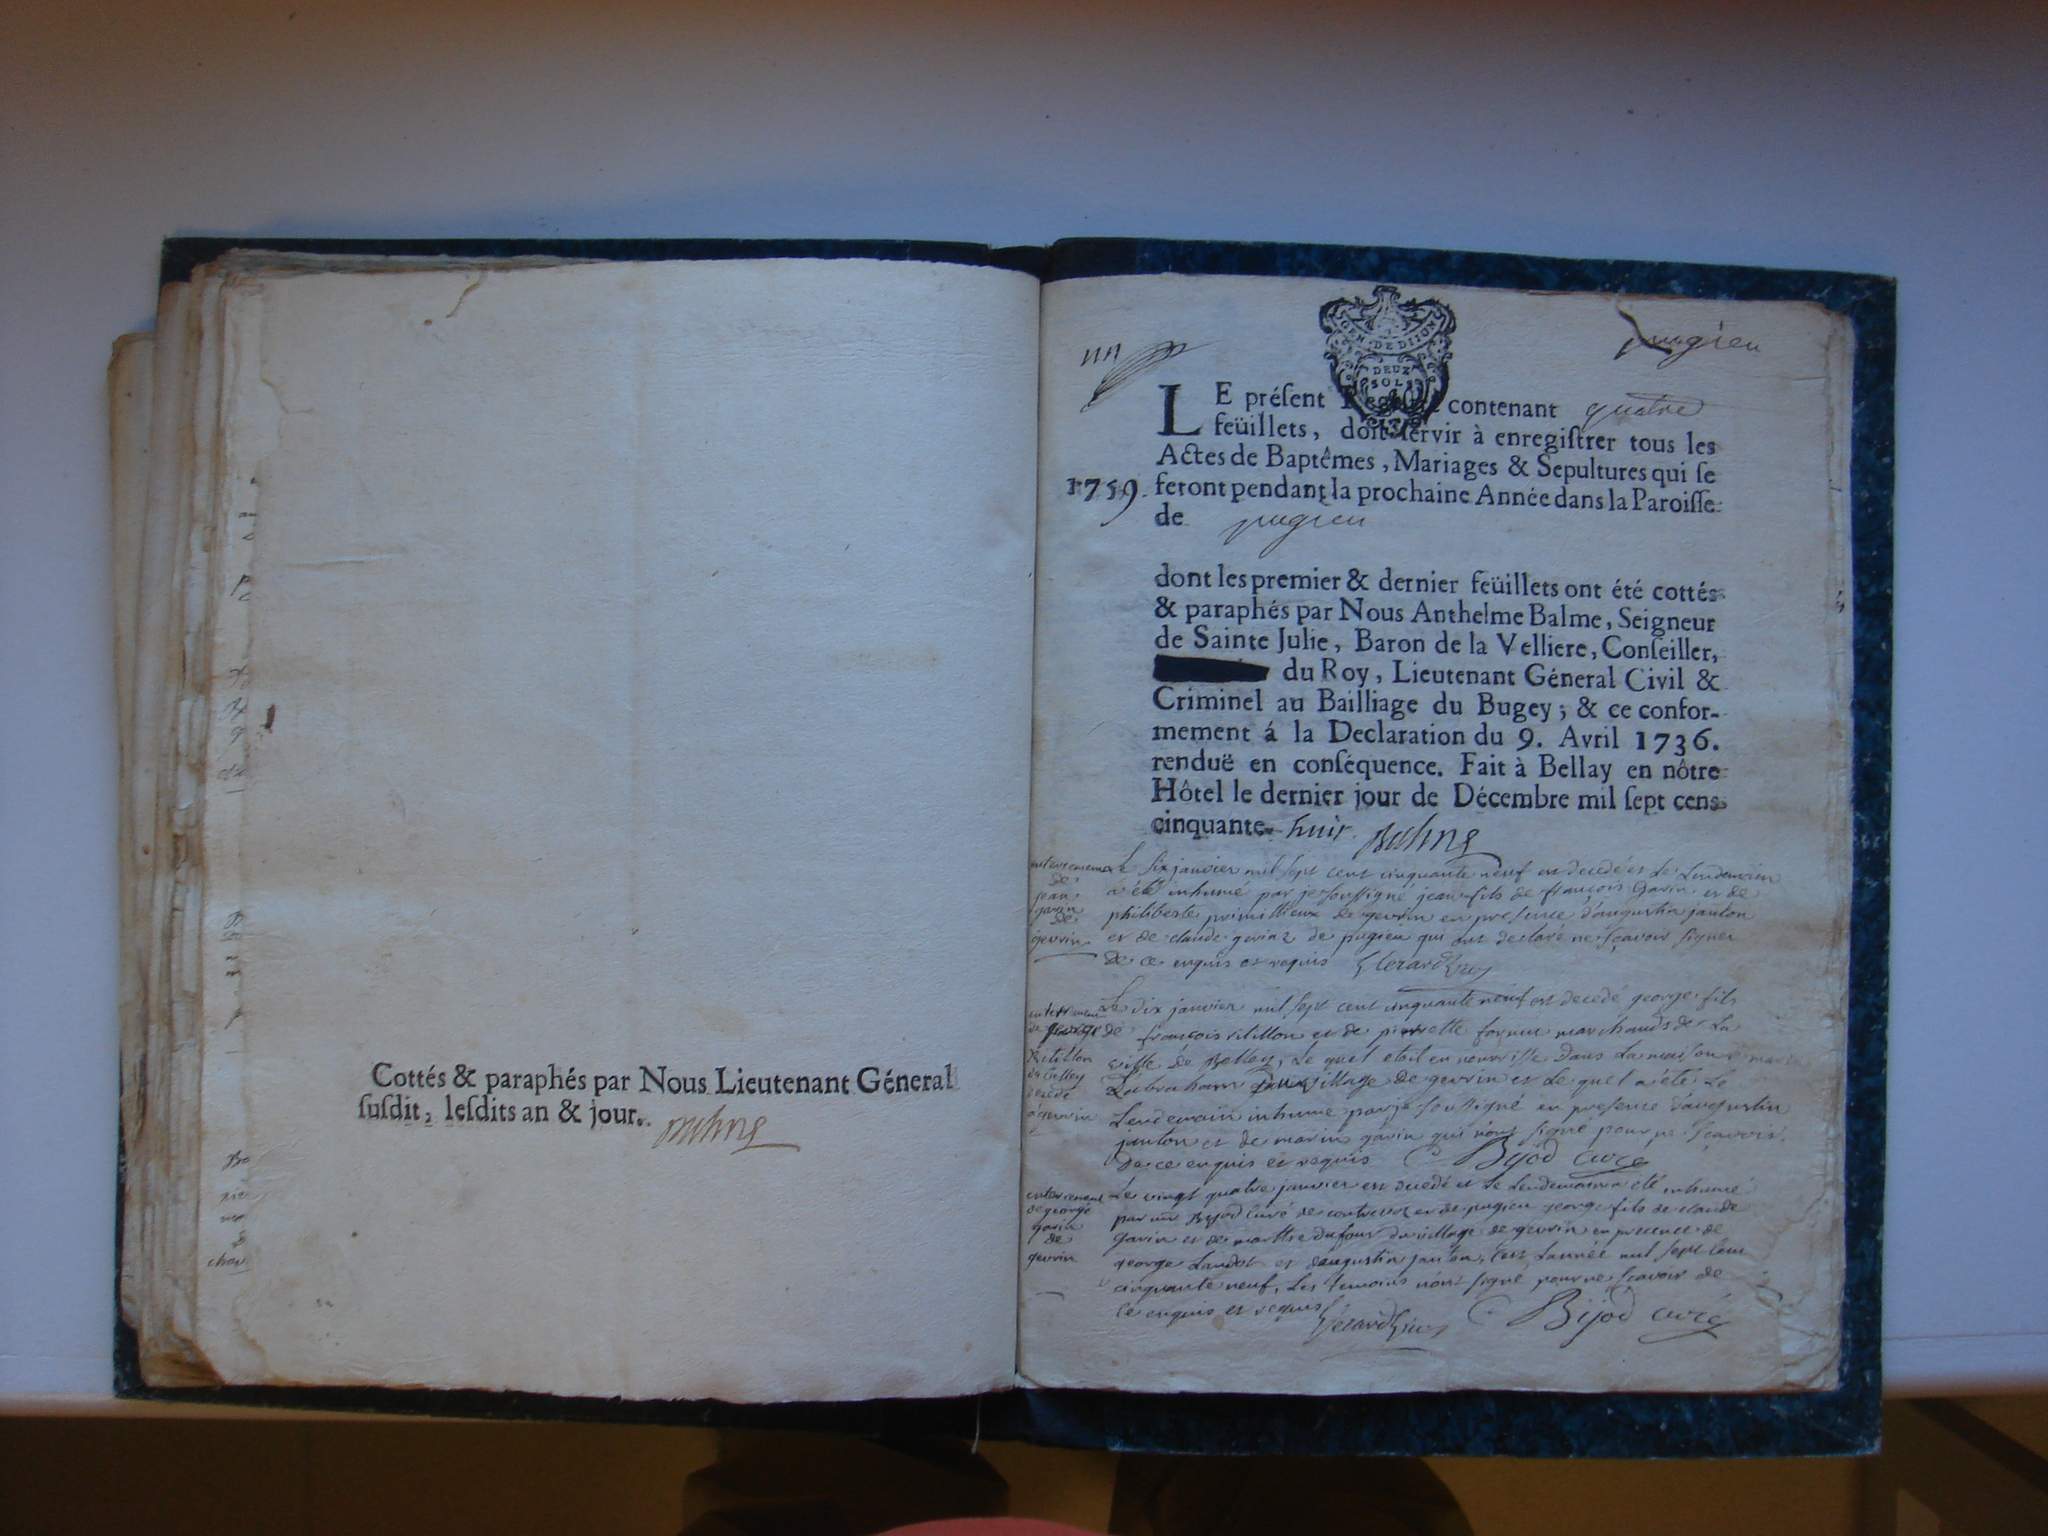 Cottés & paraphés par Nous Lieutenant Géneral
susdit, lesdits an & jour.
Balme
un
GEN. DE DIJON
DEUX
SOLS
pugieu
LE présent Registre contenant quatre
feüillets, doit servir à enregistrer tous les
Actes de Baptêmes, Mariages & Sepultures qui se
1759. feront pendant la prochaine Année dans la Paroisse
de pugieu
dont les premier & dernier feüillets ont été cottés
& paraphés par Nous Anthelme Balme, Seigneur
de Sainte Julie, Baron de la Velliere, Conseiller,
du Roy, Lieutenant Géneral Civil &
Criminel au Bailliage du Bugey; & ce confor-
mement á la Declaration du 9. Avril 1736.
renduë en conséquence. Fait à Bellay en nôtre
Hôtel le dernier jour de Décembre mil sept cens
cinquante huit. Balme
enterrement
de
jean
gavin
de
gevrin
Le six janvier mil sept cent cinquante neuf est decedé et le Lendemain
a été inhumé par je soussigné jean fils de françois Gavin et de
philiberte de gevrin en presence d'augustin janton
et de claude de pugieu qui ont declaré ne sçavoir signer
de ce enquis et requis
enterrement
de george
vitillon
de belley
decedé
a gevrin
Le dix janvier mil sept cent cinquante neuf est decedé george fils
de françois vitillon et de pierrette marchands de La
ville de Belley, Le quel etoit en nourrisse Dans La maison
village de gevrin et Le quel a été Le
Lendemain inhumé par je soussigné en presence d'augustin
janton et de marin gavin qui n'ont signé pour ne sçavoir
de ce enquis et requis Bijod curé
enterrement
de george
gavin
de
gevrin
Le vingt quatre janvier est decedé et Le Lendemain a été inhumé
par mr Bijod curé de contrevoz et de pugieu george fils de claude
Gavin et de marthe dufour du village de gevrin en presence de
george et d'augustin janton, L'année mil sept cent
cinquante neuf, Les temoins n'ont signé pour ne sçavoir de
ce enquis et requis Bijod curé